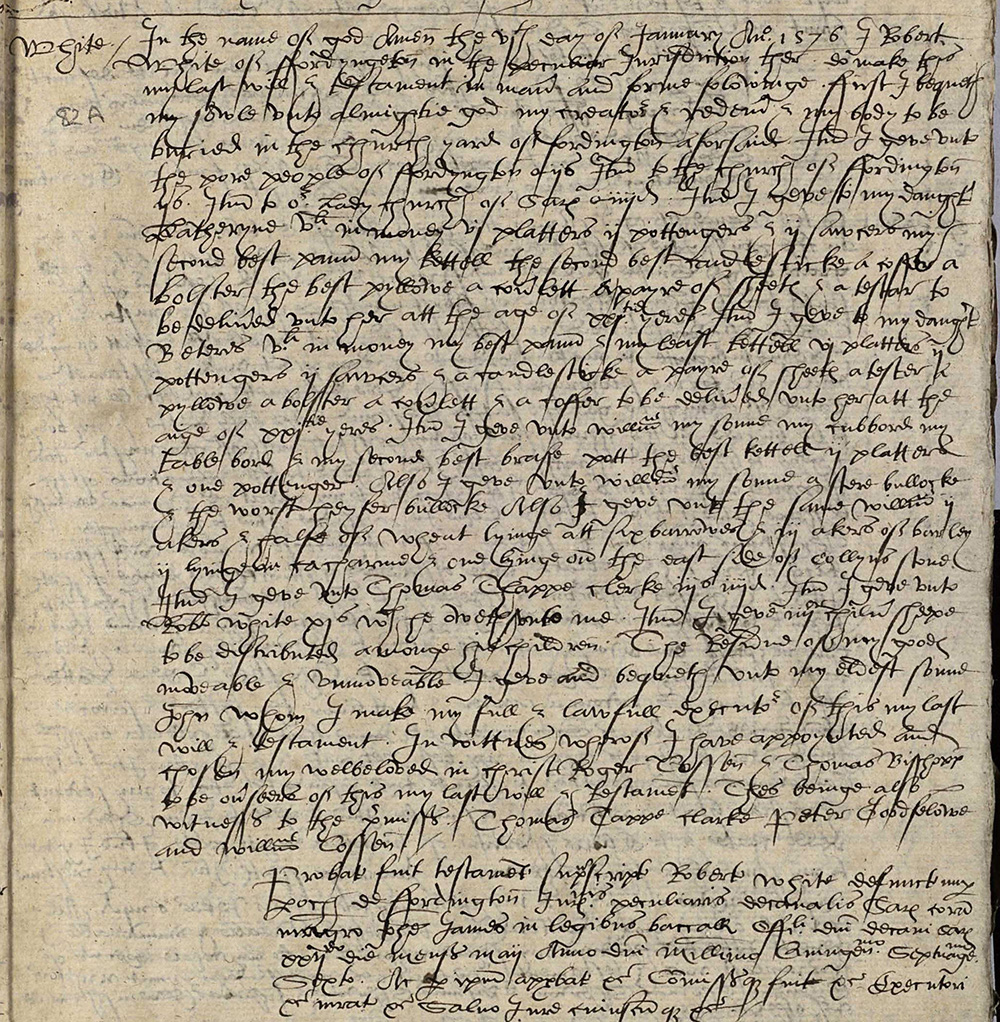 White /
82A
In the name of god Amen the vth day of January An. 1576 I Robert
White of ffordyngton in the peculier Jurisdiction ther do make this
my last will & testament in man and forme folowinge . first I bequeth
my sowle unto almightie god my creator & redemer & my body to be
buried in the church yard of fordington aforsaid . Itm I geve unto
the pore people of ffordyngton ijs Itm to the church of ffordington
Itm to or Lady church of Sarū iiijd . Itm I geve to my daught
Katheryne vli in money vj platters ij pottengers & ij sawcers my
second best pann my kettell the second best candlesticke a coffer a
bolster the best pyllowe a cov'lett a payre of sheets & a testar to
be deliv'ed unto her att the age of xxjtie yeres Itm I geve to my daught
Beteres vli in money my best pann & my least kettell vj platters ij
pottengers ij sawcers & a candlesticke a payre of sheets a tester a
pyllowe a bolster a cov'lett & a coffer to be deliv'ed unto her att the
age of xxjtie yeres . Itm I geve unto willm my sonne my cubbord my
table bord & my second best brasse pott the best kettell ij platters
& one pottenger . Also I geve unto willm my sonne a stere bullocke
& the worst heyfer bullocke Also I geve unto the same willm ij
akers & halfe of wheat lyinge att six barrowes & iij akers of barley
ij lyinge and one lyinge on the east side of Collyns stone
Itm I geve unto Thomas Tappe clerke iijs iiijd Itm I geve unto
Robt White xjs wch he oweth unto me . Itm I geve iiij shepe
to be distributed amonge his children . The Residue of my goods
moveable & unmoveable I geve and bequeth unto my eldest sonne
John whom I make my full & lawfull executor of this my last
will & testament . In wittnes wherof I have appoynted and
chosen my welbeloved in christ Roger Cossen & Thomas Bisshopp
to be ov'seers of this my last will & Testament . Thes beinge also
witnesses to the p'misses . Thomas Tappe clarke Peter Goodfelowe
and willm Cossen
Probat fuit testament sup'script Robert White defunct nup
poch de ffordington Jur'is peculiaris decanalis Sarū coram
magro Johe James in legibus baccall Offli dni decani Sarū
xxijdo die mens maij Anno dni millimo Quingenmo Septuage
Sexto . Ac p ipm approbat &c Comissaq fuit &c Executori
&c iurat &c Salvo Jure cuiuscūq &c